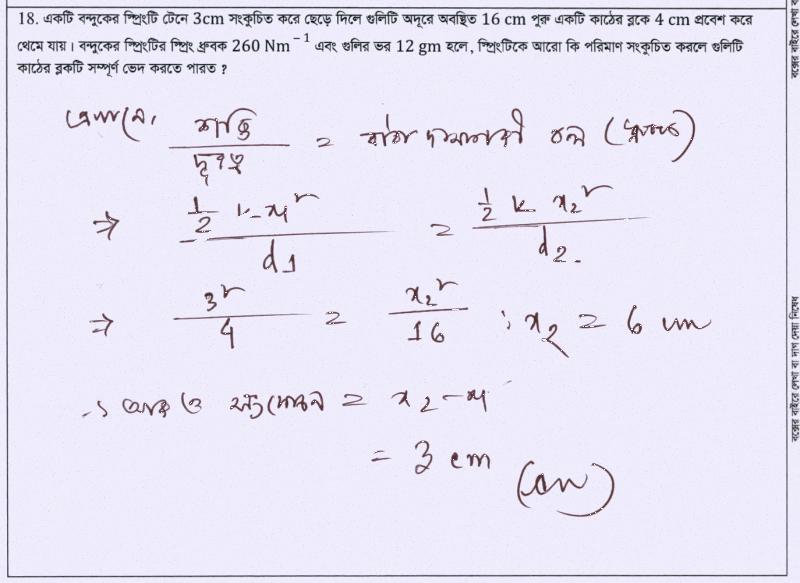 18. একটি বন্দুকের স্প্রিংটি টেনে 3cm সংকুচিত করে ছেড়ে দিলে গুলিটি অদূরে অবস্থিত 16 cm পুরু একটি কাঠের ব্লকে 4 cm প্রবেশ করে
থেমে যায়। বন্দুকের স্প্রিংটির স্প্রিং ধ্রুবক 260 Nm⁻¹ এবং গুলির ভর 12 gm হলে, স্প্রিংটিকে আরো কি পরিমাণ সংকুচিত করলে গুলিটি
কাঠের ব্লকটি সম্পূর্ণ ভেদ করতে পারত ?
এখানে, শক্তি / দূরত্ব = বাধা দানকারী বল (ধ্রুবক)
⇒ ½ k x₁² / d₁ = ½ k x₂² / d₂
⇒ 3² / 4 = x₂² / 16 ; x₂ = 6 cm
∴ আরও সংকোচন = x₂ - x₁
= 3 cm (Ans)
বক্সের বাইরে লেখা বা দাগ দেয়া নিষেধ